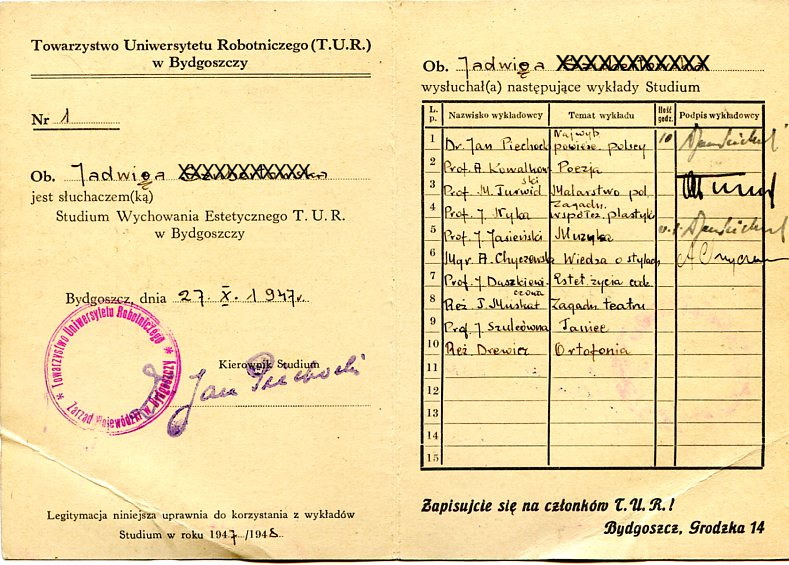 Towarzystwo Uniwersytetu Robotniczego (T.U.R.)
w Bydgoszczy
Nr 1
Ob. Jadwiga
jest słuchaczem(ką)
Studium Wychowania Estetycznego T. U. R.
w Bydgoszczy
Bydgoszcz, dnia 27. X. 1947r.
Towarzystwo Uniwersytetu Robotniczego * Zarząd Wojewódzki w Bydgoszczy *
Kierownik Studium
Jan Piechocki
Legitymacja niniejsza uprawnia do korzystania z wykładów
Studium w roku 1947/1948
Ob. Jadwiga
wysłuchał(a) następujące wykłady Studium
L. p. Nazwisko wykładowcy Temat wykładu Ilość godz. Podpis wykładowcy
1 Dr. Jan Piechocki Najwyb. powieśc. polscy 10
2 Prof. A. Kowalkowski Poezja
3 Prof. M. Turwid Malarstwo pol.
4 Prof. J. Nyka Zagadn. współcz. plastyki
5 Prof. J. Jasieński Muzyka
6 Mgr. A. Chyczewska Wiedza o stylach
7 Prof. J. Duszkiewiczowa Estet. życia
8 Reż. J. Muskat Zagadn. teatru
9 Prof. J. Szulcówna Taniec
10 Reż. Drewicz Ortofonia
11
12
13
14
15
Zapisujcie się na członków T.U.R.!
Bydgoszcz, Grodzka 14